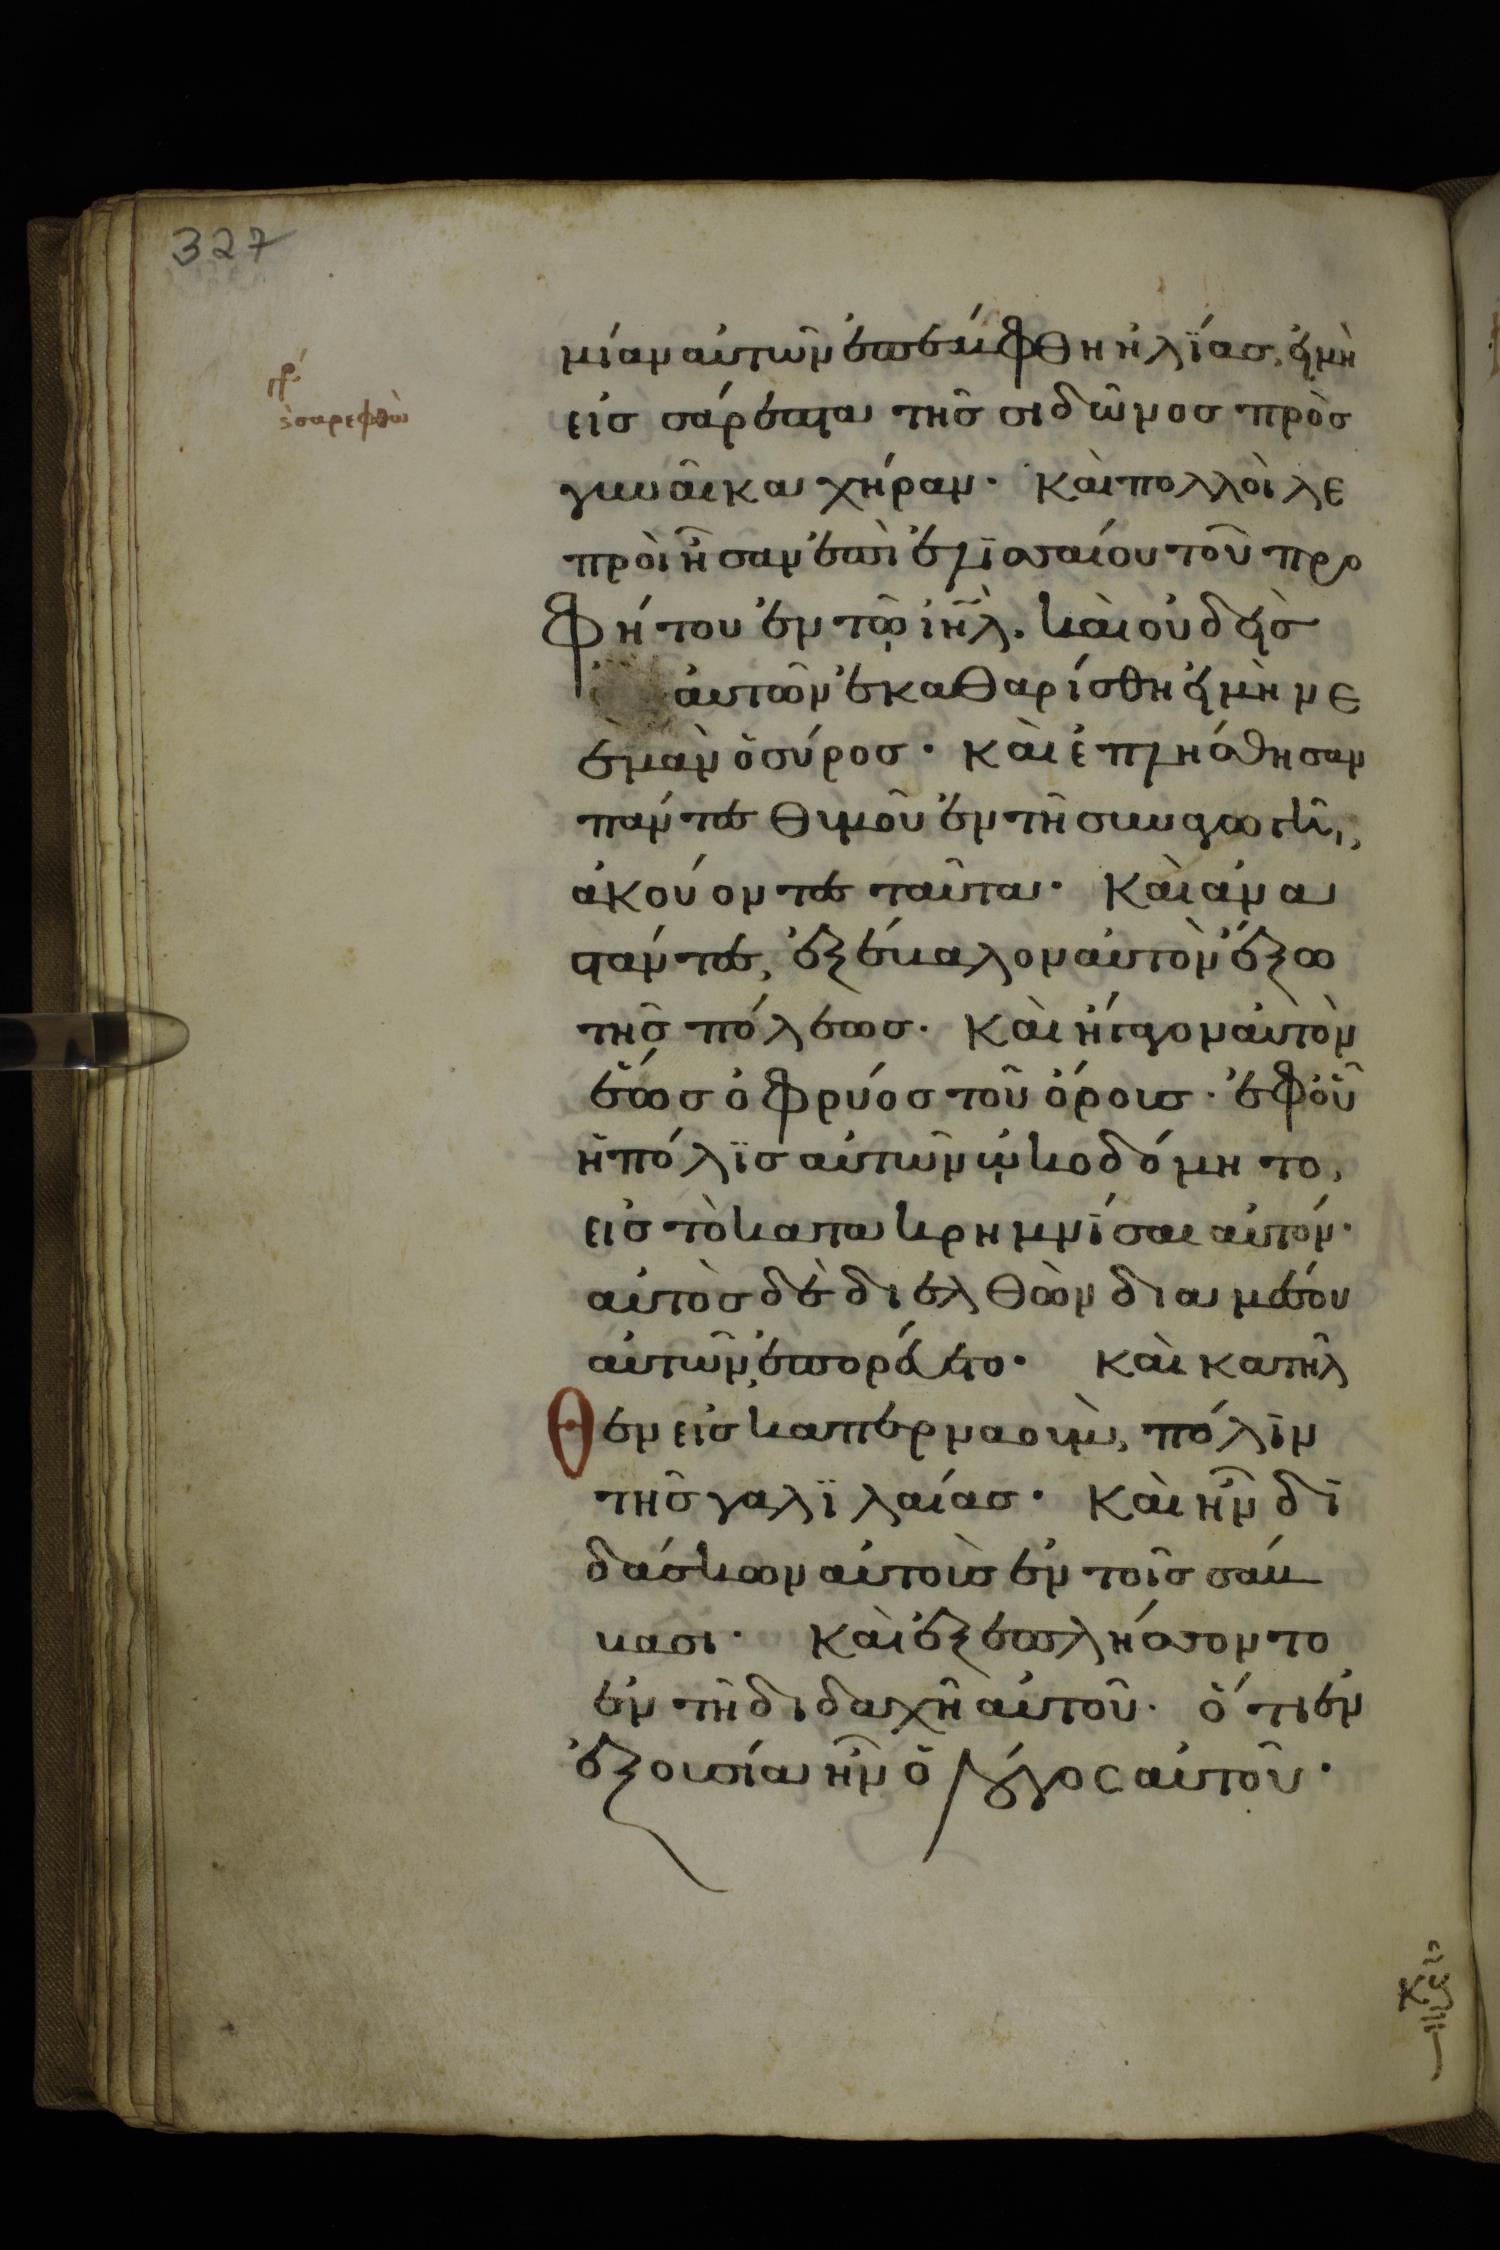 327
σαρεφθὰ
μίαν αὐτῶν ἐπέμφθη ἠλΐας, εἰ μὴ
εἰς σάρεπτα τῆς σιδῶνος πρὸς
γυναῖκα χήραν· Καὶ πολλοὶ λε
προὶ ἦσαν ἐπὶ ἐλϊσσαίου τοῦ προ
φήτου ἐν τῷ ἰηλ. καὶ οὐδεὶς
αὐτῶν ἐκαθαρίσθη εἰ μὴ νε
εμὰν ὁ σύρος· Καὶ ἐπλήσθησαν
πάντες θυμοῦ ἐν τῆ συναγωγῆ,
ἀκούοντες ταῦτα· Καὶ ἀνα
στάντες, ἐξέβαλον αὐτὸν ἔξω
τῆς πόλεως· Καὶ ἤγαγον αὐτὸν
ἕως ὀφρύος τοῦ ὄρους· ἐφ οὗ
ἡ πόλϊς αὐτῶν ᾠκοδόμητο,
εἰς τὸ κατακρημνΐσαι αὐτόν·
αὐτὸς δὲ διελθὼν δια μέσου
αὐτῶν, ἐπορεύετο· Καὶ κατῆλ
θεν εἰς καπερναοὺμ, πόλϊν
τῆς γαλϊλαίας· Καὶ ἦν δϊ
δάσκων αὐτοὺς ἐν τοῖς σάβ
βασι· Καὶ ἐξεπλήσσοντο
ἐν τῆ διδαχῆ αὐτοῦ· ὅτι ἐν
ἐξουσία ἦν ὁ λόγος αὐτοῦ·